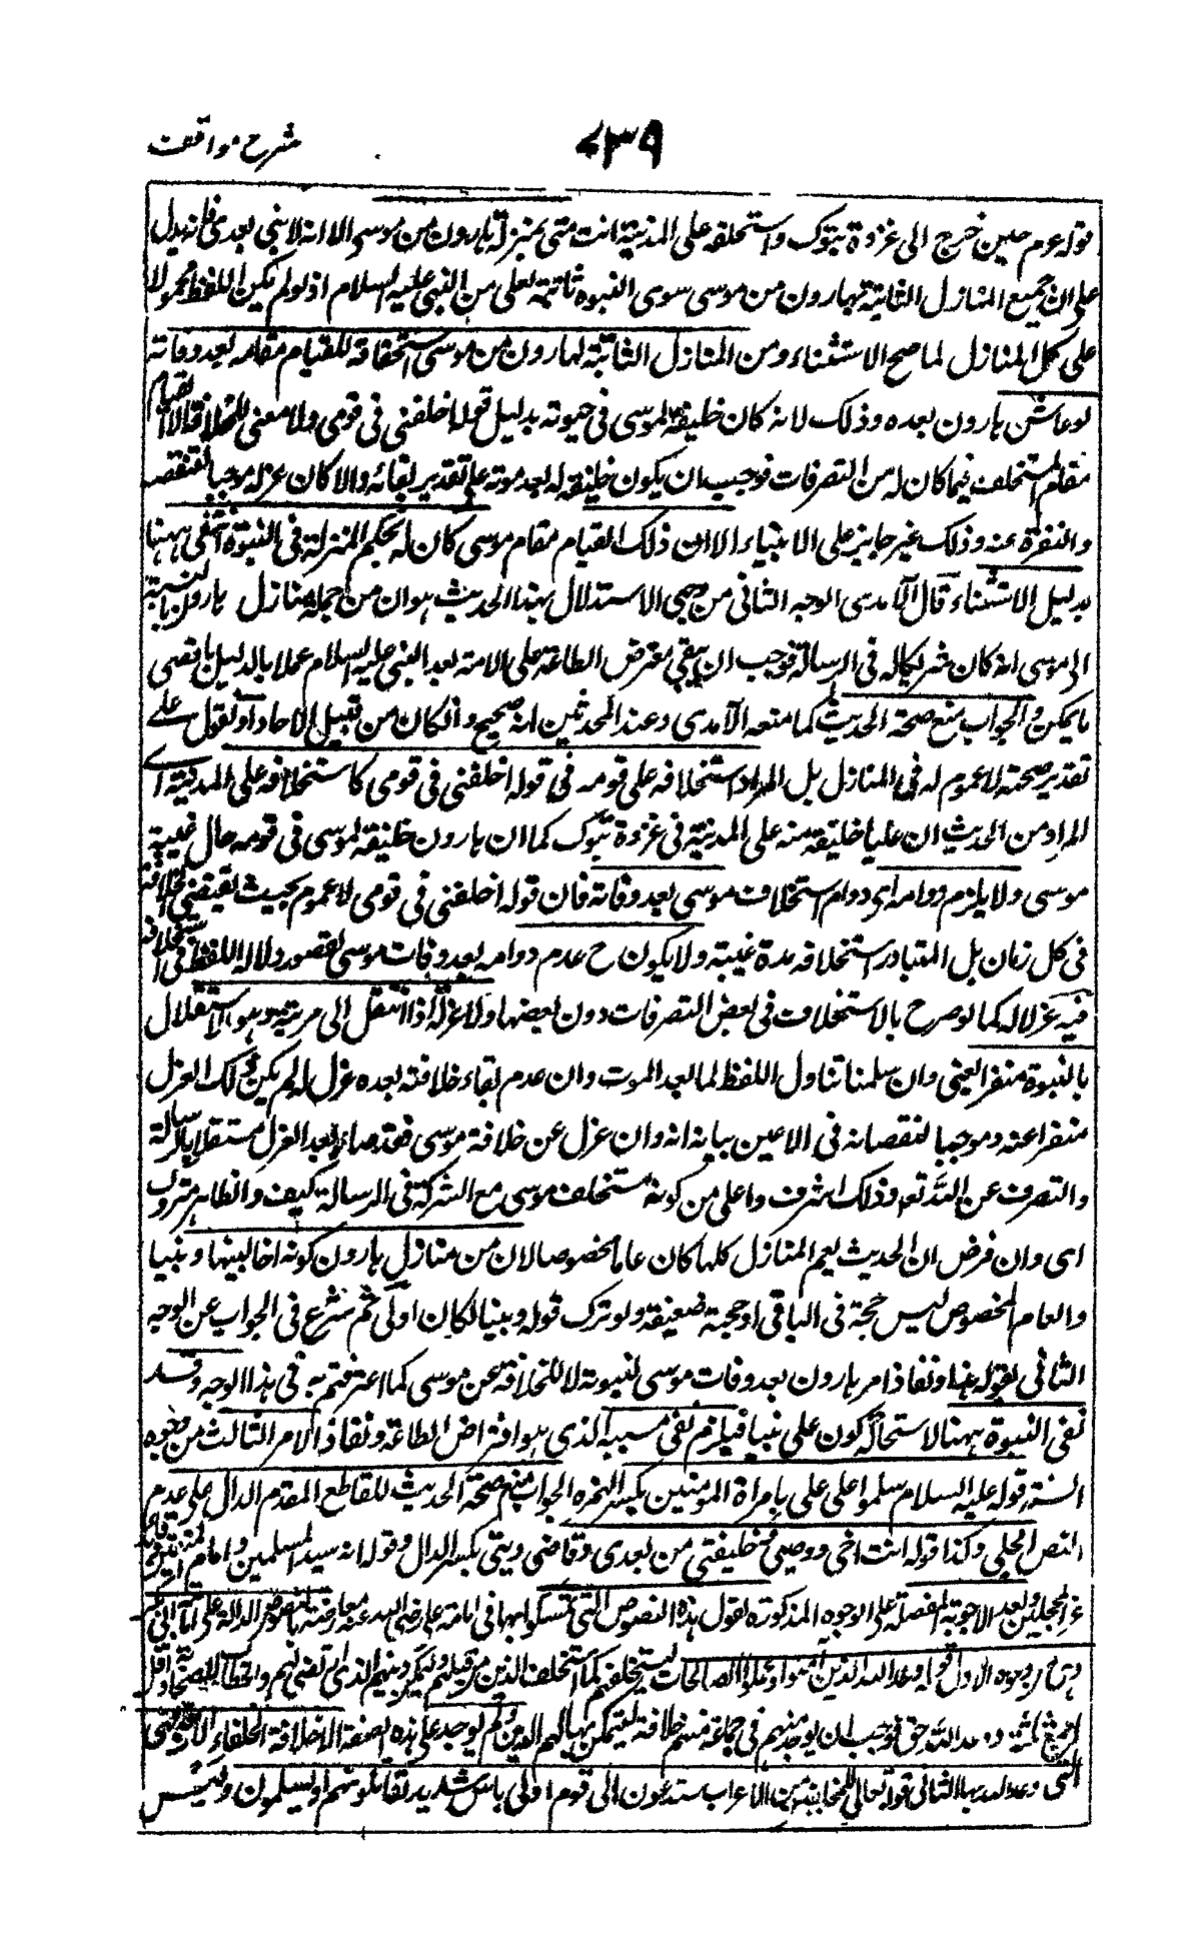 شرح مواقف
٧٣٩
قوله عم حين خرج الى غزوة تبوك واستخلفه على المدينة انت منى بمنزلة هارون من موسى الا انه لا نبى بعدى فانه يدل
على ان جميع المنازل الثابتة لهارون من موسى سوى النبوة ثابتة لعلى من النبى عليه السلام اذ لو لم يكن اللفظ محمولا
على كل المنازل لما صح الاستثناء ومن المنازل الثابتة لهارون من موسى استحقاقه للقيام مقامه بعد وفاته
لو عاش هارون بعده وذلك لانه كان خليفة لموسى فى حيوته بدليل قوله اخلفنى فى قومى ولا معنى للخلافة الا القيام
مقام المستخلف فيما كان له من التصرفات فوجب ان يكون خليفة له بعد موته على تقدير بقائه والا كان عزله موجبا لتنقصه
والنفرة عنه وذلك غير جايز على الانبياء الا ان ذلك القيام مقام موسى كان له بحكم المنزلة فى النبوة وانتفى ههنا
بدليل الاستثناء قال الآمدى الوجه الثانى من وجهى الاستدلال بهذا الحديث هو ان من جملة منازل هارون بالنسبة
الى موسى انه كان شريكا له فى الرسالة فوجب ان يبقى مفترض الطاعة على الامة بعد النبى عليه السلام عملا بالدليل باقصى
ما يمكن والجواب منع صحة الحديث كما منعه الآمدى وعند المحدثين انه صحيح وان كان من قبيل الاحاد او نقول على
تقدير صحته لا عموم له فى المنازل بل المراد استخلافه على قومه فى قوله اخلفنى فى قومى كاستخلافه على المدينة اى
المراد من الحديث ان عليا خليفة منه على المدينة فى غزوة تبوك كما ان هارون خليفة لموسى فى قومه حال غيبته
موسى ولا يلزم دوامه اى دوام استخلاف موسى بعد وفاته فان قوله اخلفنى فى قومى لا عموم بحيث يقتضى الخلافة
فى كل زمان بل المتبادر استخلافه مدة غيبته ولا يكون ح عدم دوامه بعد وفات موسى لقصور دلالة اللفظ فى استخلافه
فيه عزلا له كما لو صرح بالاستخلاف فى بعض التصرفات دون بعضها ولا عزله اذا انتقل الى مرتبة وهو الاستقلال
بالنبوة منفرا يعنى وان سلمنا تناول اللفظ لما بعد الموت وان عدم بقاء خلافته بعده عزل له لم يكن ذلك العزل
منفرا عنه وموجبا لنقصانه فى الاعين بيانه انه وان عزل عن خلافة موسى فقد صار بعد العزل مستقلا بالرسالة
والتصرف عن الله تعم وذلك اشرف واعلى من كونه مستخلف موسى مع الشركة فى الرسالة كيف والظاهر متروك
اى وان فرض ان الحديث يعم المنازل كلها كان عاما مخصوصا لان من منازل هارون كونه اخا لبينها ونبيا
والعام المخصوص ليس حجة فى الباقى او حجة ضعيفة ولو ترك قوله ونبيا لكان اولى ثم شرع فى الجواب عن الوجه
الثانى بقوله هذا ونفاذ امر هارون بعد وفات موسى لنبوته لا للخلافة عن موسى كما اعترفتم به فى هذا الوجه وقد
نفى النبوة ههنا لاستحالة كون على نبيا فيلزم نفى مسببه الذى هو افتراض الطاعة ونفاذ الامر الثالث من وجوه
السنة قوله عليه السلام سلموا على على بامرة المؤمنين بكسر الهمزه الجواب منع صحة الحديث للقاطع المقدم الدال على عدم
النص الجلى وكذا قوله انت اخى ووصيى وخليفتى من بعدى وقاضى دينى بكسر الدال وقوله انه سيد المسلمين وامام المتقين وقائد
غر المحجلين وبعد الاجوبة المفصلة على الوجوه المذكورة نقول هذه النصوص التى تمسكوا بها فى امامة على رضى الله عنه معارضة بالنصوص الدالة على امامة ابى بكر
وهى من وجوه الاول قوله وعد الله الذين آمنوا وعملوا الصالحات ليستخلفنهم كما استخلف الذين من قبلهم وليمكنن لهم دينهم الذى ارتضى لهم والخطاب للصحابة واقل
الجمع ثلثة ووعد الله حق فوجب ان يوجد منهم فى جماعة منهم خلافة يتمكن بها لهم الدين ولم يوجد على هذه الصفة الا خلافة الخلفاء الاربعة فهى
التى وعد الله بها الثانى قوله تعالى للمخلفين من الاعراب ستدعون الى قوم اولى باس شديد تقاتلونهم او يسلمون وليس